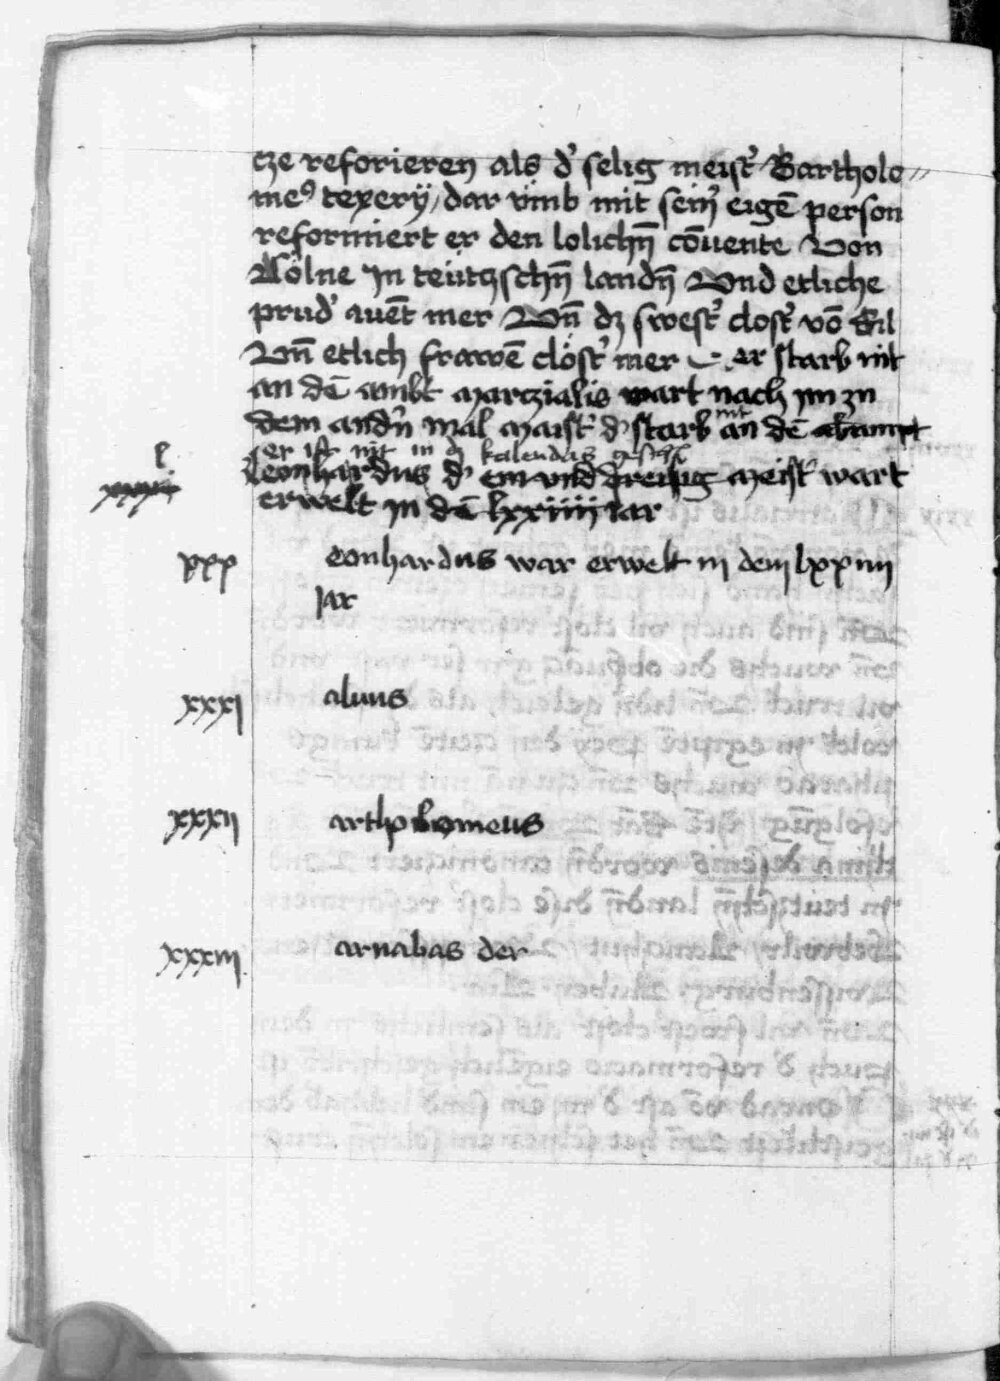 cze reforieren als d' selig meist' Bartholo
me9 texery / dar vmb mit sein' eigē person
reformiert er den lolichn̄ cōuente Von
Cölne In teütschn̄ landn̄ Vnd etliche
prud' auēt mer Vn̄ dz swest' clost' vō Sil
Vn̄ etlich frawē clöst' mer er starb nit
an dē ambt Marcialis wart nach im zu
dem andn̄ mal Maist' d' starb nit an dē
er ist nit in kalendas
l
Leonhardus d' ein vnd dreisig Meist' wart
xxxi
erwelt in dē lxxiiii Iar
xxx eonhardus war erwelt in dem lxxiiii
Iar
xxxi aluus
xxxii artholomeus
xxxiii arnabas der